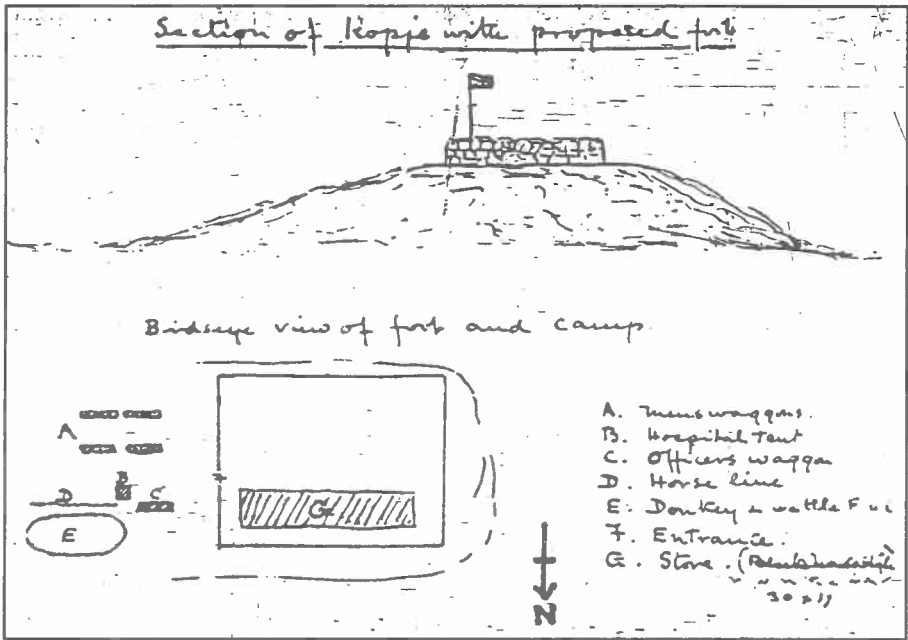 Section of Kopje with proposed fort
Birdseye view of fort and camp
A
B
D
C
E
G
N
A. Mens waggons.
B. Hospital Tent
C. Officers waggon
D. Horse line
E. Donkey
F. Entrance.
G. Store.
30 x 11